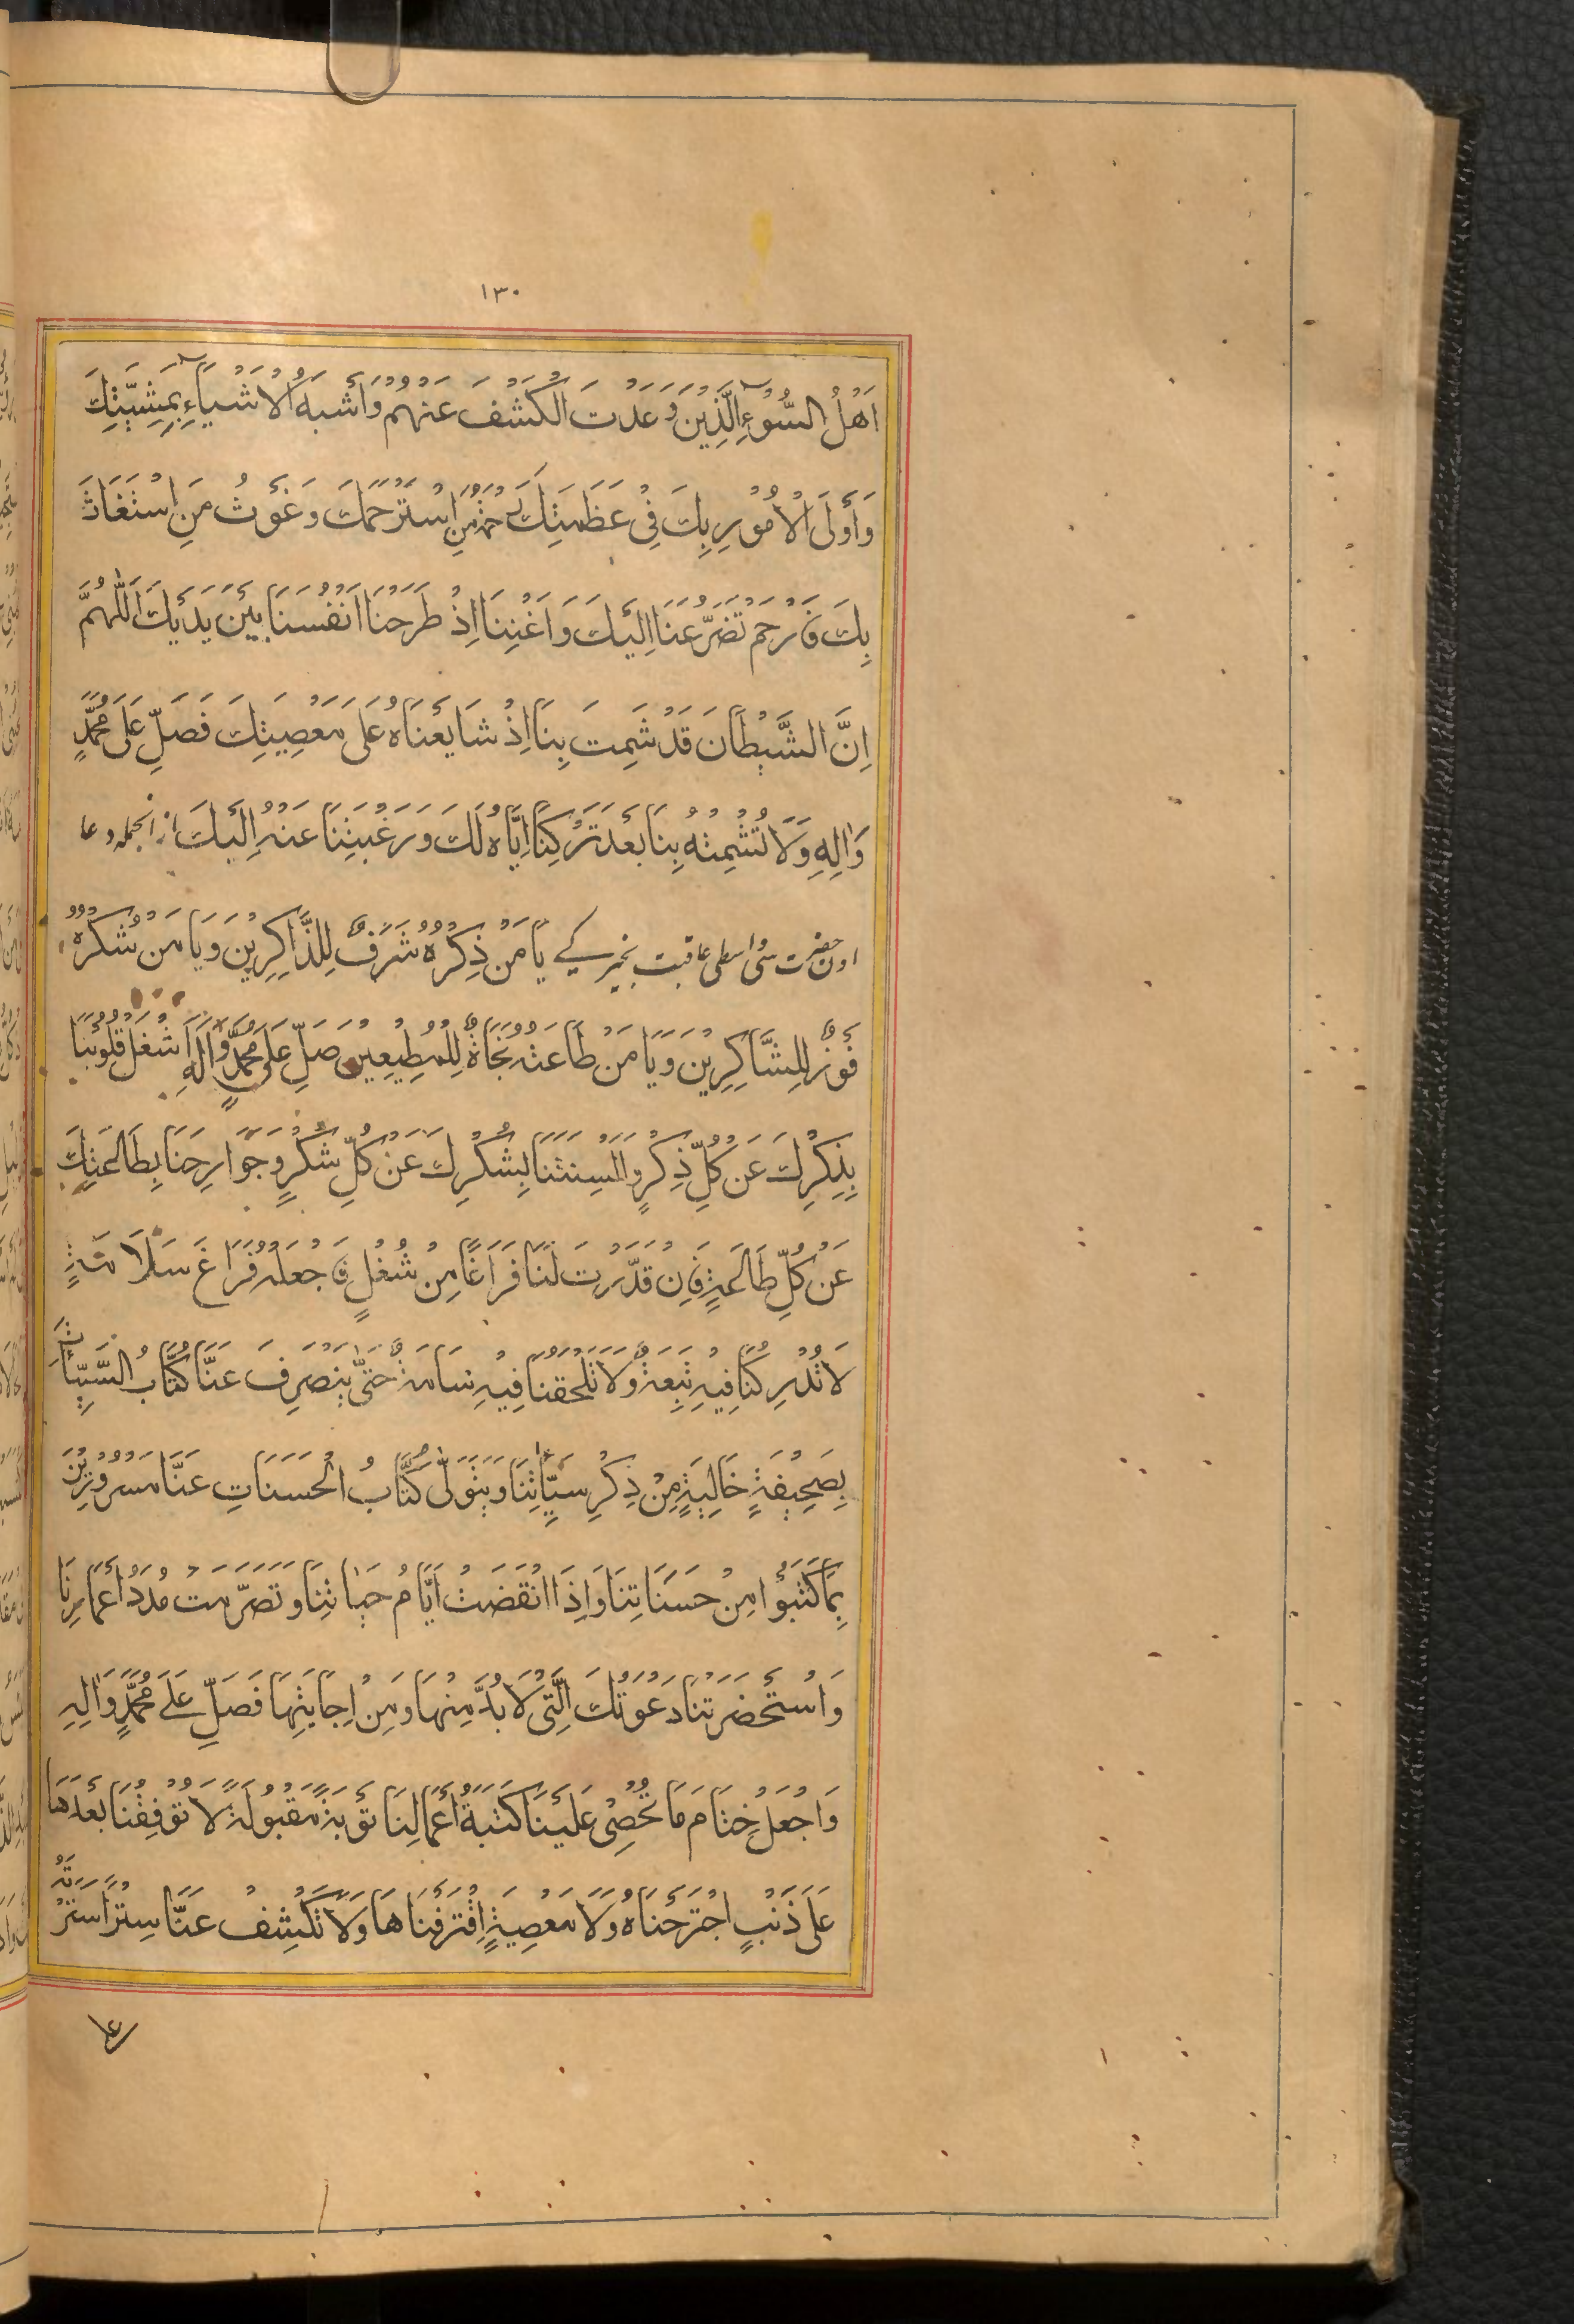 ١٣٠
اَهْلُ السُّوْءِ الَّذِيْنَ وَعَدْتَ الْكَشْفَ عَنْهُمْ وَاَشْبَهُ الْاَشْيَاءِ بِمَشِيَّتِكَ
وَاَوْلَى الْاُمُوْرِ بِكَ فِيْ عَظَمَتِكَ رَحْمَةُ مَنِ اسْتَرْحَمَكَ وَغَوْثُ مَنِ اسْتَغَاثَ
بِكَ فَارْحَمْ تَضَرُّعَنَا اِلَيْكَ وَاَغْنِنَا اِذْ طَرَحْنَا اَنْفُسَنَا بَيْنَ يَدَيْكَ اَللّٰهُمَّ
اِنَّ الشَّيْطَانَ قَدْ شَمِتَ بِنَا اِذْ شَايَعْنَاهُ عَلَى مَعْصِيَتِكَ فَصَلِّ عَلَى مُحَمَّدٍ
وَاٰلِهِ وَلَا تُشْمِتْهُ بِنَا بَعْدَ تَرْكِنَا اِيَّاهُ لَكَ وَرَغْبَتِنَا عَنْهُ اِلَيْكَ از انجمله دعا
اون حضرت سى واسطى عاقبت بخير كے يَا مَنْ ذِكْرُهُ شَرَفٌ لِلذَّاكِرِيْنَ وَيَا مَنْ شُكْرُهُ
فَوْزٌ لِلشَّاكِرِيْنَ وَيَا مَنْ طَاعَتُهُ نَجَاةٌ لِلْمُطِيْعِيْنَ صَلِّ عَلَى مُحَمَّدٍ وَاٰلِهِ اَشْغِلْ قُلُوْبَنَا
بِذِكْرِكَ عَنْ كُلِّ ذِكْرٍ وَاَلْسِنَتَنَا بِشُكْرِكَ عَنْ كُلِّ شُكْرٍ وَجَوَارِحَنَا بِطَاعَتِكَ
عَنْ كُلِّ طَاعَةٍ فَاِنْ قَدَّرْتَ لَنَا فَرَاغًا مِنْ شُغْلٍ فَاجْعَلْهُ فَرَاغَ سَلَامَةٍ
لَا تُدْرِكُنَا فِيْهِ تَبِعَةٌ وَلَا تَلْحَقُنَا فِيْهِ سَامَةٌ حَتّٰى يَنْصَرِفَ عَنَّا كُتَّابُ السَّيِّئَاتِ
بِصَحِيْفَةٍ خَالِيَةٍ مِنْ ذِكْرِ سَيِّاٰتِنَا وَيَتَوَلّٰى كُتَّابُ الْحَسَنَاتِ عَنَّا مَسْرُوْرِيْنَ
بِمَا كَتَبُوْا مِنْ حَسَنَاتِنَا وَاِذَا انْقَضَتْ اَيَّامُ حَيَاتِنَا وَتَصَرَّمَتْ مُدَدُ اَعْمَارِنَا
وَاسْتَحْضَرَتْنَا دَعْوَتُكَ الَّتِيْ لَا بُدَّ مِنْهَا وَمِنْ اِجَابَتِهَا فَصَلِّ عَلَى مُحَمَّدٍ وَاٰلِهِ
وَاجْعَلْ خِتَامَ مَا تُحْصِيْ عَلَيْنَا كَتَبَةُ اَعْمَالِنَا تَوْبَةً مَقْبُوْلَةً لَا تُوْقِفُنَا بَعْدَهَا
عَلَى ذَنْبٍ اجْتَرَحْنَاهُ وَلَا مَعْصِيَةٍ اِقْتَرَفْنَاهَا وَلَا تَكْشِفْ عَنَّا سِتْرًا سَتَرْتَهُ